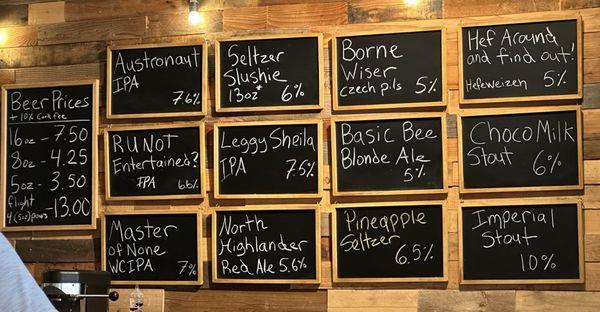 Beer Prices
+ 10% Kat fee
16oz - 7.50
8oz - 4.25
5oz - 3.50
flight
4 (5oz) pours - 13.00
Austronaut
IPA
7.6%
Seltzer
Slushie
13oz* 6%
Borne
Wiser
czech pils 5%
Hef Around
and find out!
Hefeweizen 5%
R U Not
Entertained?
IPA 6.6%
Leggy Sheila
IPA 7.5%
Basic Bee
Blonde Ale
5%
Choco Milk
Stout 6%
Master
of None
WCIPA 7%
North
Highlander
Red Ale 5.6%
Pineapple
Seltzer
6.5%
Imperial
Stout
10%